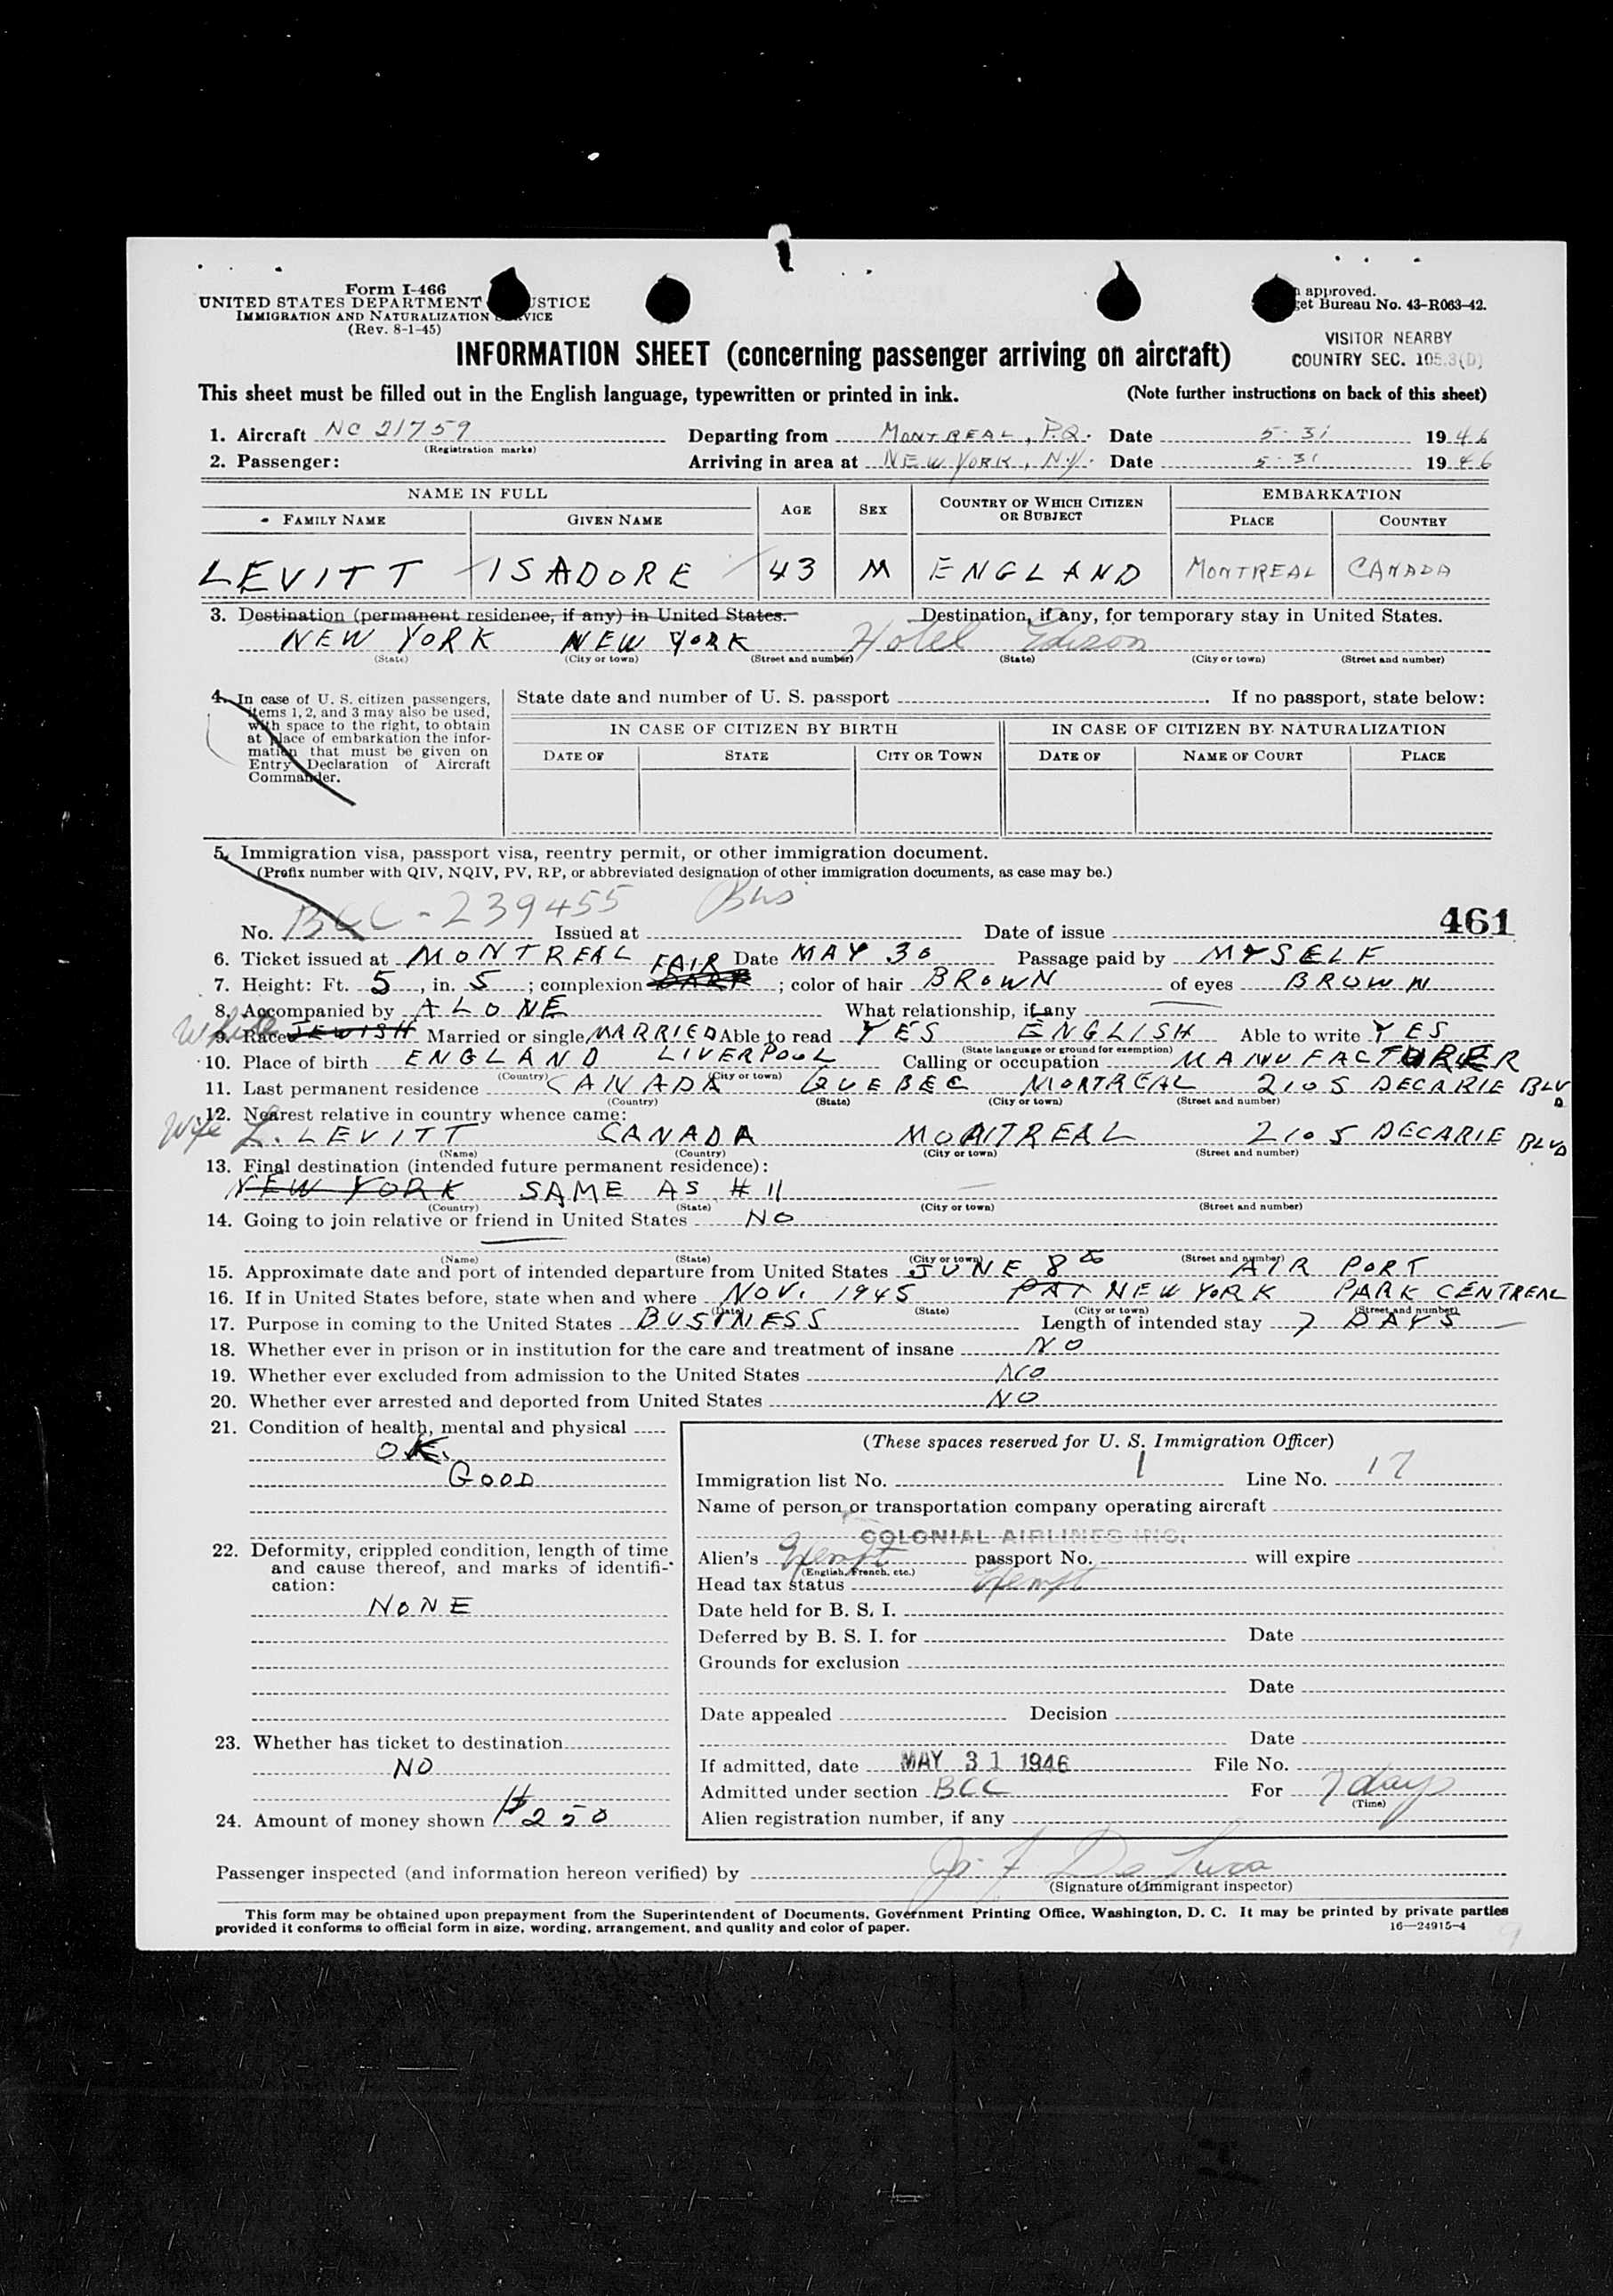 Form I-466
UNITED STATES DEPARTMENT USTICE
IMMIGRATION AND NATURALIZATION VICE
(Rev. 8-1-45)
approved.
et Bureau No. 43-R063-42.
VISITOR NEARBY
COUNTRY SEC. 105.3(D)
INFORMATION SHEET (concerning passenger arriving on aircraft)
This sheet must be filled out in the English language, typewritten or printed in ink. (Note further instructions on back of this sheet)
1. Aircraft NC 21759 Departing from MONTREAL, P.Q. Date 5-31 1946
(Registration marks)
2. Passenger: Arriving in area at NEW YORK, N.Y. Date 5-31 1946
NAME IN FULL AGE SEX COUNTRY OF WHICH CITIZEN OR SUBJECT EMBARKATION
FAMILY NAME GIVEN NAME PLACE COUNTRY
LEVITT ISADORE 43 M ENGLAND MONTREAL CANADA
3. Destination (permanent residence, if any) in United States. Destination, if any, for temporary stay in United States.
NEW YORK NEW YORK Hotel Edison
(State) (City or town) (Street and number) (State) (City or town) (Street and number)
4. In case of U. S. citizen passengers,
items 1, 2, and 3 may also be used,
with space to the right, to obtain
at place of embarkation the infor-
mation that must be given on
Entry Declaration of Aircraft
Commander.
State date and number of U. S. passport . If no passport, state below:
IN CASE OF CITIZEN BY BIRTH IN CASE OF CITIZEN BY NATURALIZATION
DATE OF STATE CITY OR TOWN DATE OF NAME OF COURT PLACE
5. Immigration visa, passport visa, reentry permit, or other immigration document.
(Prefix number with QIV, NQIV, PV, RP, or abbreviated designation of other immigration documents, as case may be.)
No. BCC-239455 Bus Issued at Date of issue 461
6. Ticket issued at MONTREAL Date MAY 30 Passage paid by MYSELF
7. Height: Ft. 5, in. 5; complexion DARK FAIR; color of hair BROWN of eyes BROWN
8. Accompanied by ALONE What relationship, if any
White 9. Race JEWISH Married or single MARRIED Able to read YES ENGLISH Able to write YES
(State language or ground for exemption)
10. Place of birth ENGLAND LIVERPOOL Calling or occupation MANUFACTURER
(Country) (City or town)
11. Last permanent residence CANADA QUEBEC MONTREAL 2105 DECARIE BLVD
(Country) (State) (City or town) (Street and number)
12. Nearest relative in country whence came:
Wife L. LEVITT CANADA MONTREAL 2105 DECARIE BLVD
(Name) (Country) (City or town) (Street and number)
13. Final destination (intended future permanent residence):
NEW YORK SAME AS # 11
(Country) (State) (City or town) (Street and number)
14. Going to join relative or friend in United States NO
(Name) (State) (City or town) (Street and number)
15. Approximate date and port of intended departure from United States JUNE 8 AIR PORT
16. If in United States before, state when and where NOV. 1945 NEW YORK PARK CENTREAL
(Date) (State) (City or town) (Street and number)
17. Purpose in coming to the United States BUSINESS Length of intended stay 7 DAYS
18. Whether ever in prison or in institution for the care and treatment of insane NO
19. Whether ever excluded from admission to the United States NO
20. Whether ever arrested and deported from United States NO
21. Condition of health, mental and physical
O.K.
GOOD
22. Deformity, crippled condition, length of time
and cause thereof, and marks of identifi-
cation:
NONE
23. Whether has ticket to destination
NO
24. Amount of money shown $250
(These spaces reserved for U. S. Immigration Officer)
Immigration list No. 1 Line No. 17
Name of person or transportation company operating aircraft
COLONIAL AIRLINES INC.
Alien's Exempt passport No. will expire
(English, French, etc.)
Head tax status Exempt
Date held for B. S. I.
Deferred by B. S. I. for Date
Grounds for exclusion
Date
Date appealed Decision
Date
If admitted, date MAY 31 1946 File No.
Admitted under section BCC For 7 days
(Time)
Alien registration number, if any
Passenger inspected (and information hereon verified) by De Luca
(Signature of immigrant inspector)
This form may be obtained upon prepayment from the Superintendent of Documents, Government Printing Office, Washington, D. C. It may be printed by private parties
provided it conforms to official form in size, wording, arrangement, and quality and color of paper. 16—24915-4